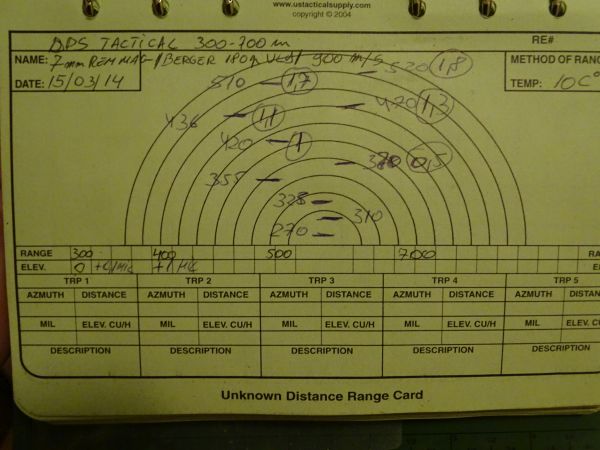 www.ustacticalsupply.com
copyright © 2004
DPS TACTICAL 300-700 m RE#
NAME: 7mm REM MAG / BERGER 180g VLD / 900 m/s METHOD OF RANG
DATE: 15/03/14 TEMP: 10C°
520 1,8
510 1,7
470 1,3
436 1,1
420 1
380 0,5
355
328
310
270
RANGE 300 400 500 700 RA
ELEV. 0 +1 EL
TRP 1 TRP 2 TRP 3 TRP 4 TRP 5
AZIMUTH DISTANCE AZIMUTH DISTANCE AZIMUTH DISTANCE AZIMUTH DISTANCE AZIMUTH DISTAN
MIL ELEV. CU/H MIL ELEV. CU/H MIL ELEV. CU/H MIL ELEV. CU/H MIL ELEV. CU
DESCRIPTION DESCRIPTION DESCRIPTION DESCRIPTION DESCRIPTION
Unknown Distance Range Card